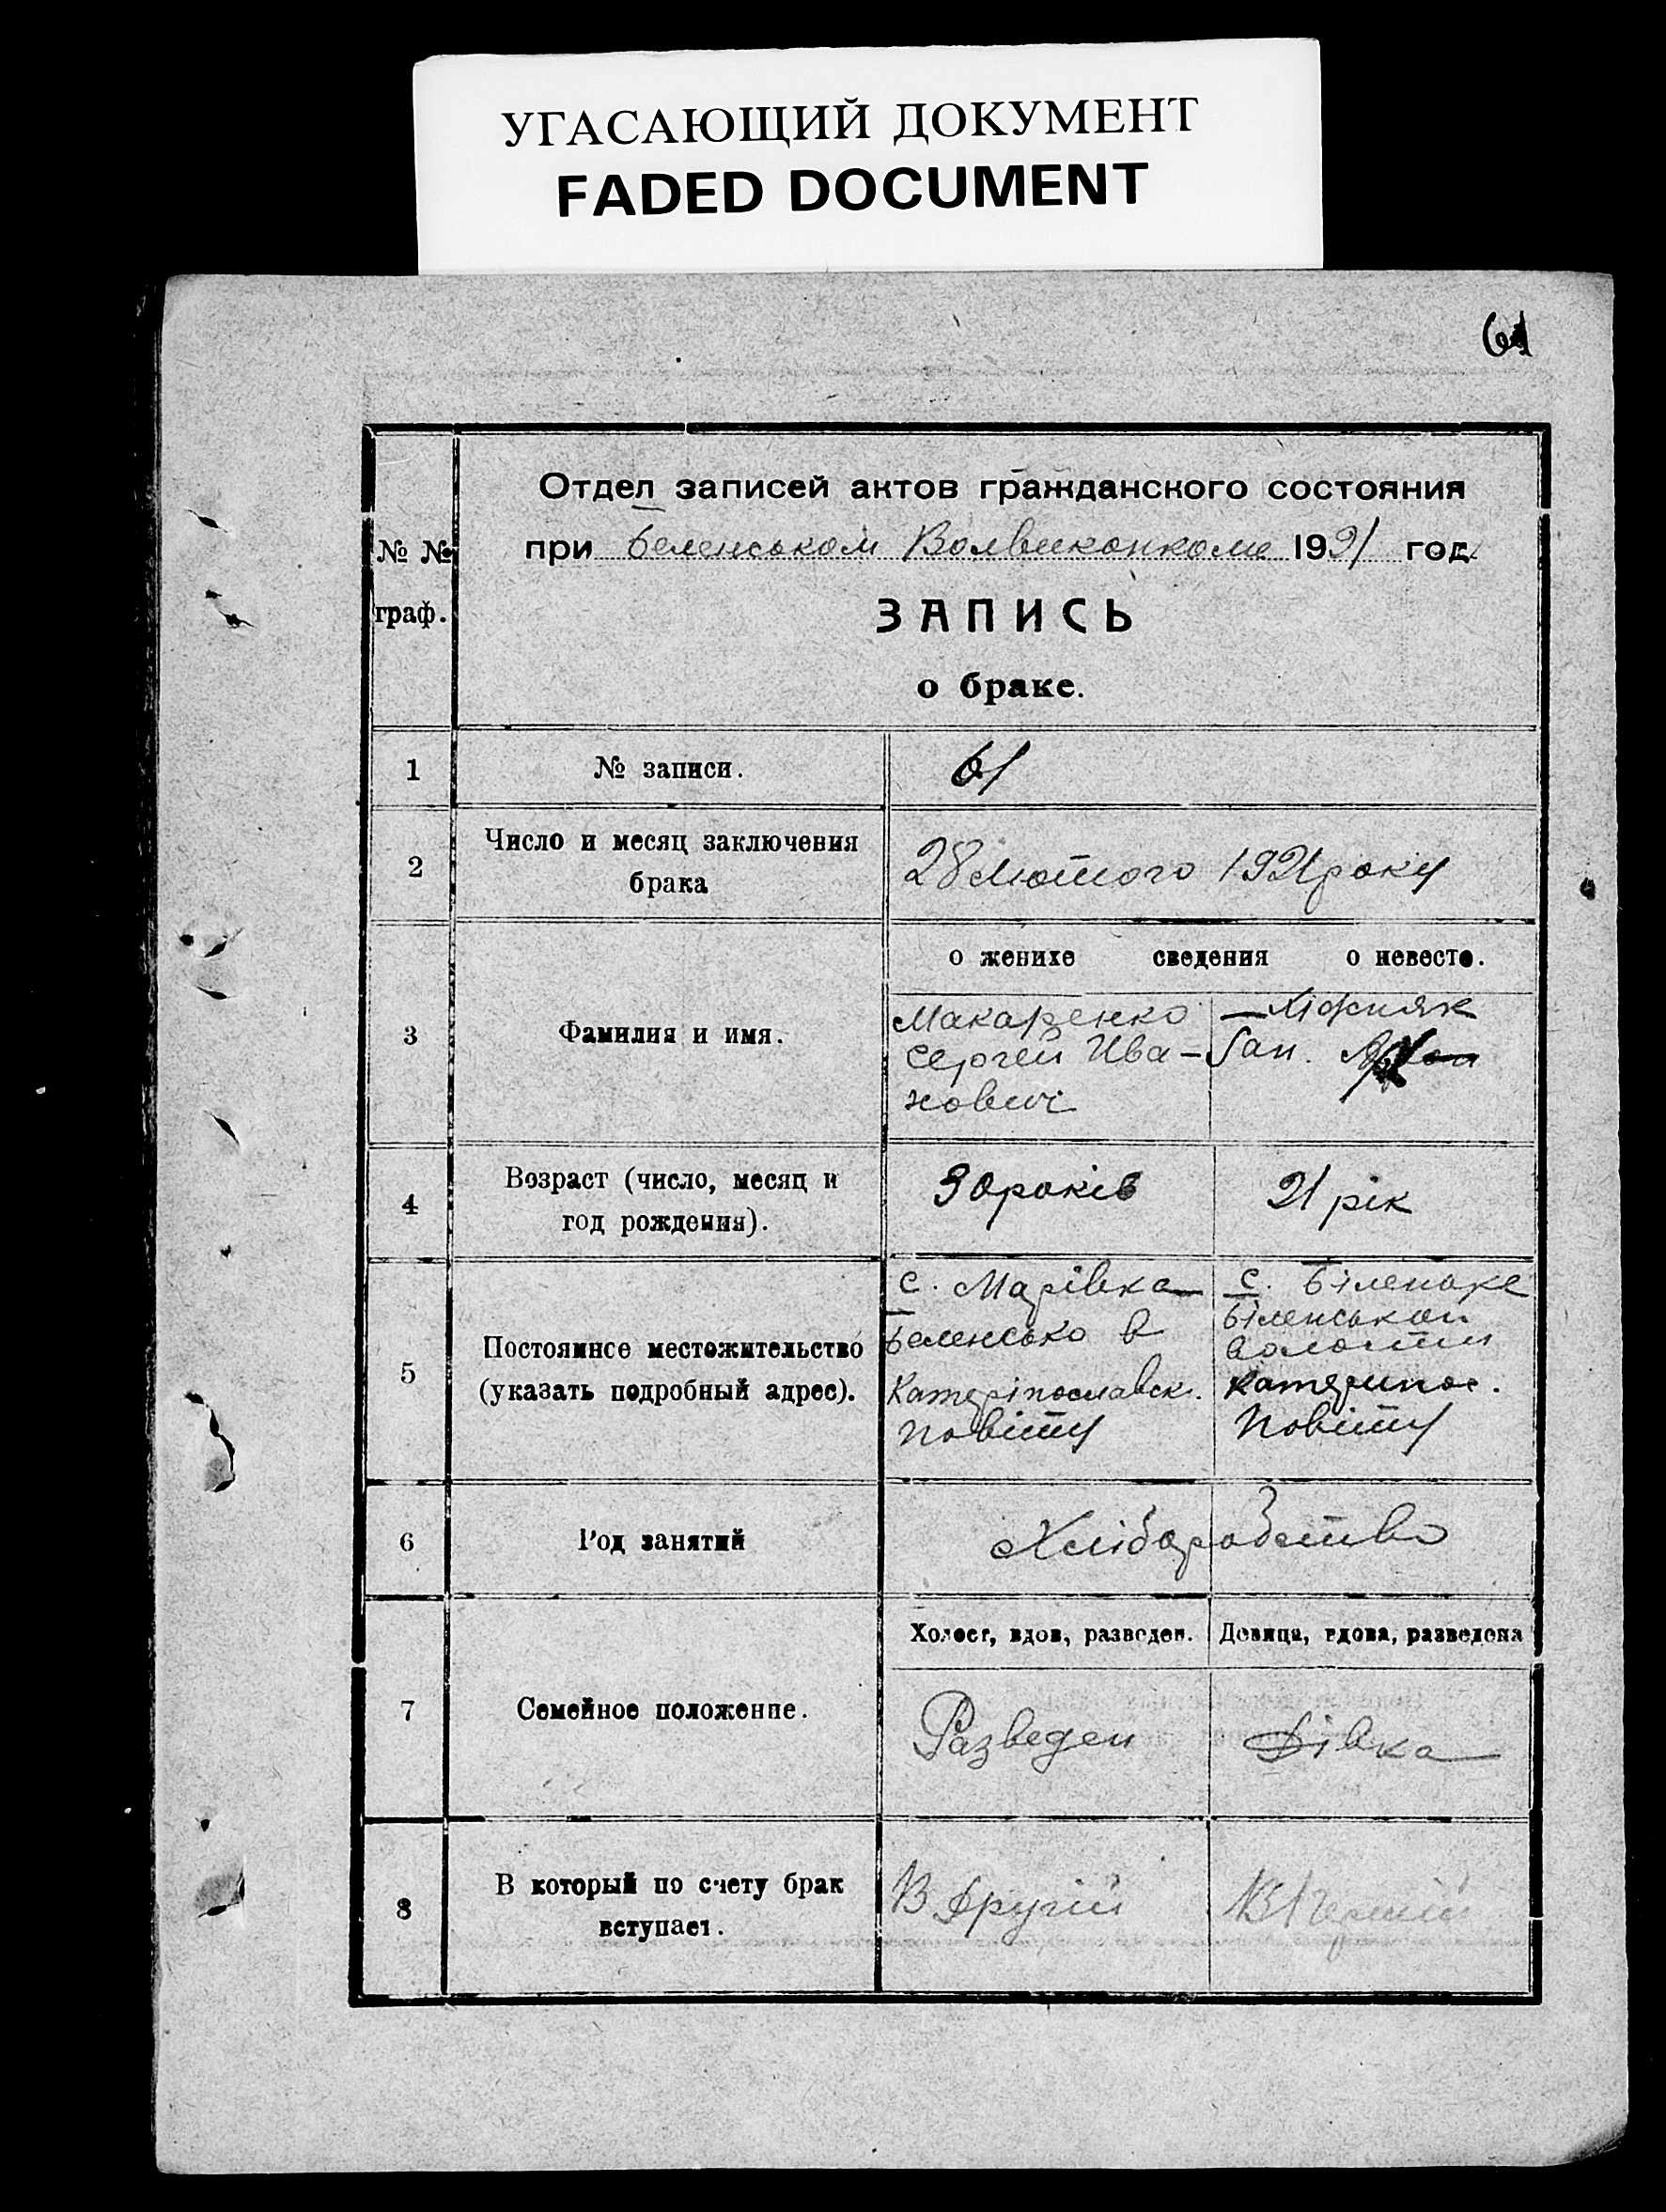 УГАСАЮЩИЙ ДОКУМЕНТ
FADED DOCUMENT
61
Отдел записей актов гражданского состояния
при Беленськом Волвиконкоме 1921 год
№ №
граф.
ЗАПИСЬ
о браке.
1 № записи. 61
2 Число и месяц заключения
брака
28 Лютого 1921 року
о женихе сведения о невесте.
3 Фамилия и имя.
Макаренко
Сергей Ива-
нович
Ган.
4 Возраст (число, месяц и
год рождения).
30 років 21 рік
5 Постоянное местожительство
(указать подробный адрес).
с. Марівка
Беленсько в
Катерінославск.
Повіту
с. Біленьке
Біленськои
Волости
Катеринос.
Повіту
6 Род занятий
Хліборобство
Холост, вдов, разведен. Девица, вдова, разведена
7 Семейное положение.
Разведен Дівка
8 В который по счету брак
вступает.
В Другий В Перший